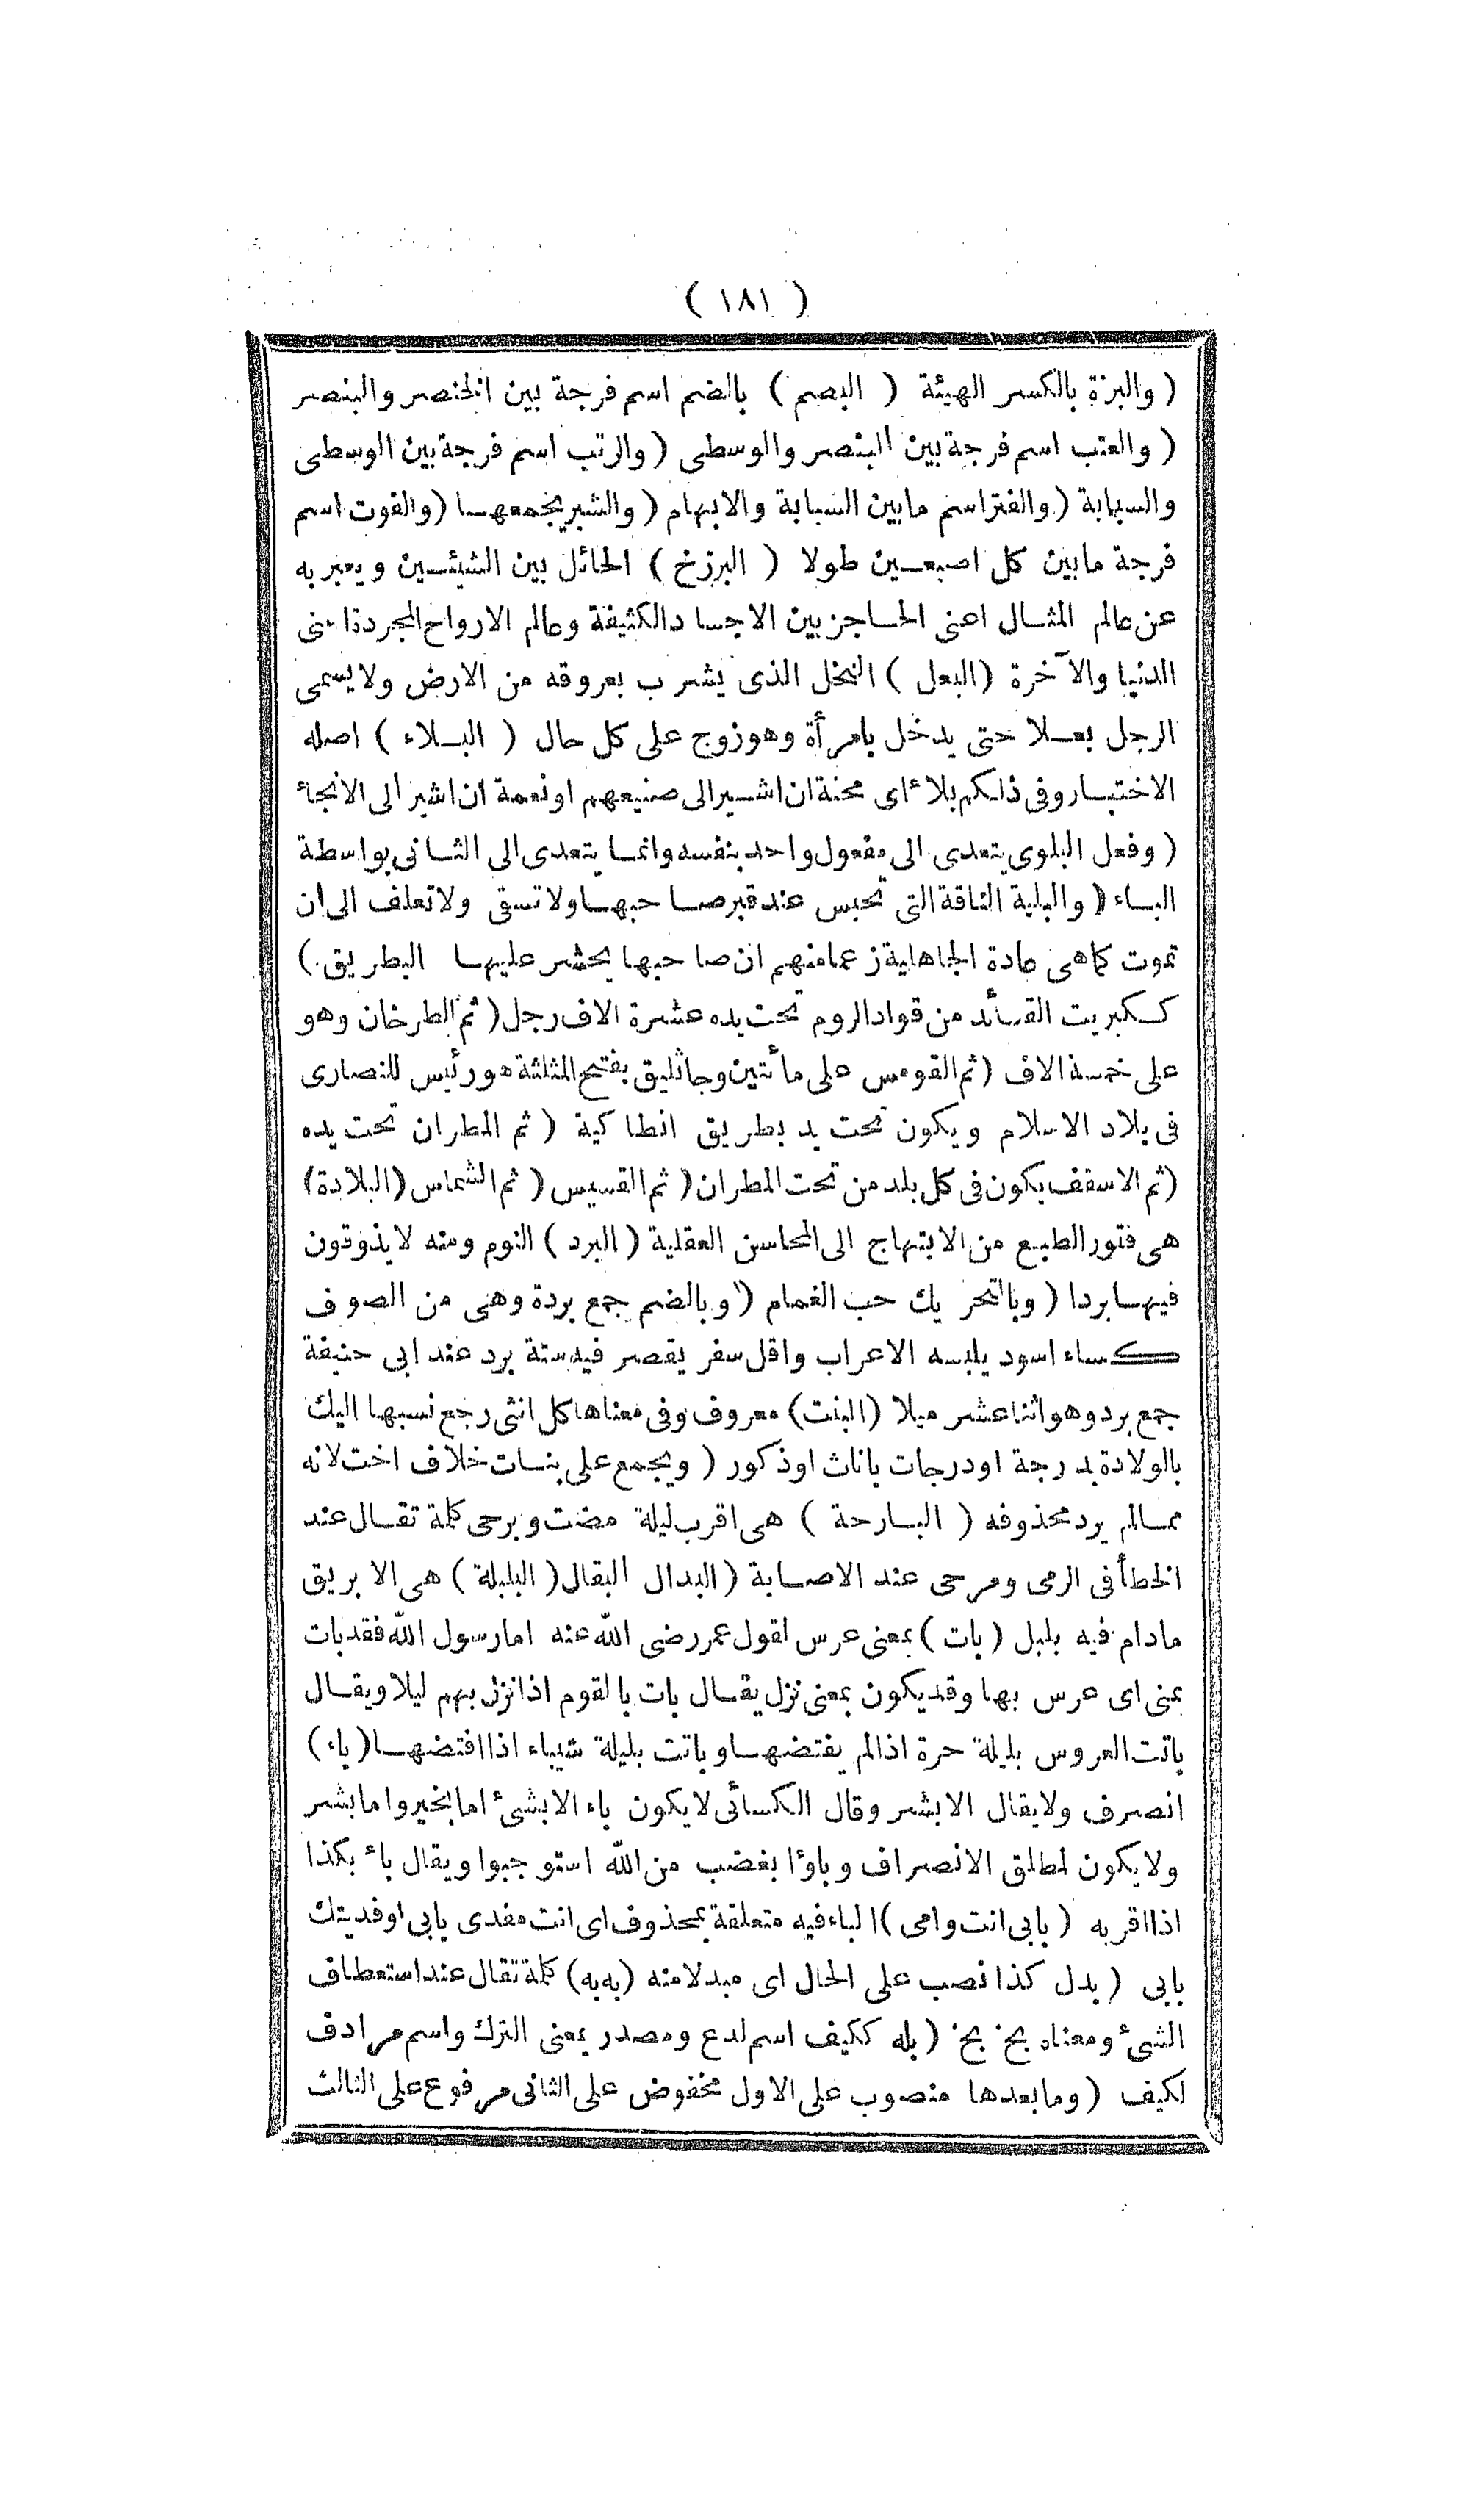 ( ١٨١ )
( والبزة بالكسر الهيئة ( البصم ) بالضم اسم فرجة بين الخنصر والبنصر
( والعتب اسم فرجة بين البنصر والوسطى ( والرتب اسم فرجة بين الوسطى
والسبابة ( والفتر اسم مابين السبابة والابهام ( والشبر يجمعها ( والفوت اسم
فرجة مابين كل اصبعين طولا ( البرزخ ) الحائل بين الشيئين ويعبر به
عن عالم المثال اعنى الحاجز بين الاجساد الكثيفة وعالم الارواح المجردة اعنى
الدنيا والآخرة ( البعل ) النخل الذى يشرب بعروقه من الارض ولا يسمى
الرجل بعلا حتى يدخل بامرأة وهو زوج على كل حال ( البلاء ) اصله
الاختبار وفى ذلكم بلاء اى محنة ان اشير الى صنيعهم او نعمة ان اشير الى الانجاء
( وفعل البلوى يتعدى الى مفعول واحد بنفسه وانما يتعدى الى الثانى بواسطة
الباء ( والبلية الناقة التى تحبس عند قبر صاحبها ولا تسقى ولا تعلف الى ان
تموت كما هى عادة الجاهلية زعما منهم ان صاحبها يحشر عليها البطريق )
ككبريت القائد من قواد الروم تحت يده عشرة الاف رجل ( ثم الطرخان وهو
على خمسة الاف ( ثم القومس على مأتين وجاثليق بفتح المثلثة هو رئيس للنصارى
فى بلاد الاسلام ويكون تحت يد بطريق انطاكية ( ثم المطران تحت يده
( ثم الاسقف يكون فى كل بلد من تحت المطران ( ثم القسيس ( ثم الشماس ( البلادة )
هى فتور الطبع من الابتهاج الى المحاسن العقلية ( البرد ) النوم ومنه لا يذوقون
فيها بردا ( وبالتحريك حب الغمام ( وبالضم جمع بردة وهى من الصوف
كساء اسود يلبسه الاعراب واقل سفر يقصر فيه ستة برد عند ابى حنيفة
جمع برد وهو اثنا عشر ميلا ( البنت ) معروف وفى معناها كل انثى رجع نسبها اليك
بالولادة بدرجة او درجات باناث او ذكور ( ويجمع على بنات خلاف اخت لانه
مما لم يرد محذوفه ( البارحة ) هى اقرب ليلة مضت وبرحى كلمة تقال عند
الخطأ فى الرمى ومرحى عند الاصابة ( البدال البقال ( البلبلة ) هى الابريق
مادام فيه بلبل ( بات ) بمعنى عرس لقول عمر رضى الله عنه اما رسول الله فقد بات
بمنى اى عرس بها وقد يكون بمعنى نزل يقال بات بالقوم اذا نزل بهم ليلا ويقال
باتت العروس بليلة حرة اذا لم يفتضها وباتت بليلة شيباء اذا افتضها ( باء )
انصرف ولا يقال الا بشر وقال الكسائى لا يكون باء الا بشئ اما بخير واما بشر
ولا يكون لمطلق الانصراف وباؤا بغضب من الله استوجبوا ويقال باء بكذا
اذا اقر به ( بابى انت وامى ) الباء فيه متعلقة بمحذوف اى انت مفدى بابى او فديتك
بابى ( بدل كذا نصب على الحال اى مبدلا منه ( به به ) كلمة تقال عند استعطاف
الشئ ومعناه بخ بخ ( بله ككيف اسم لدع ومصدر بمعنى الترك واسم مرادف
لكيف ( وما بعدها منصوب على الاول مخفوض على الثانى مرفوع على الثالث